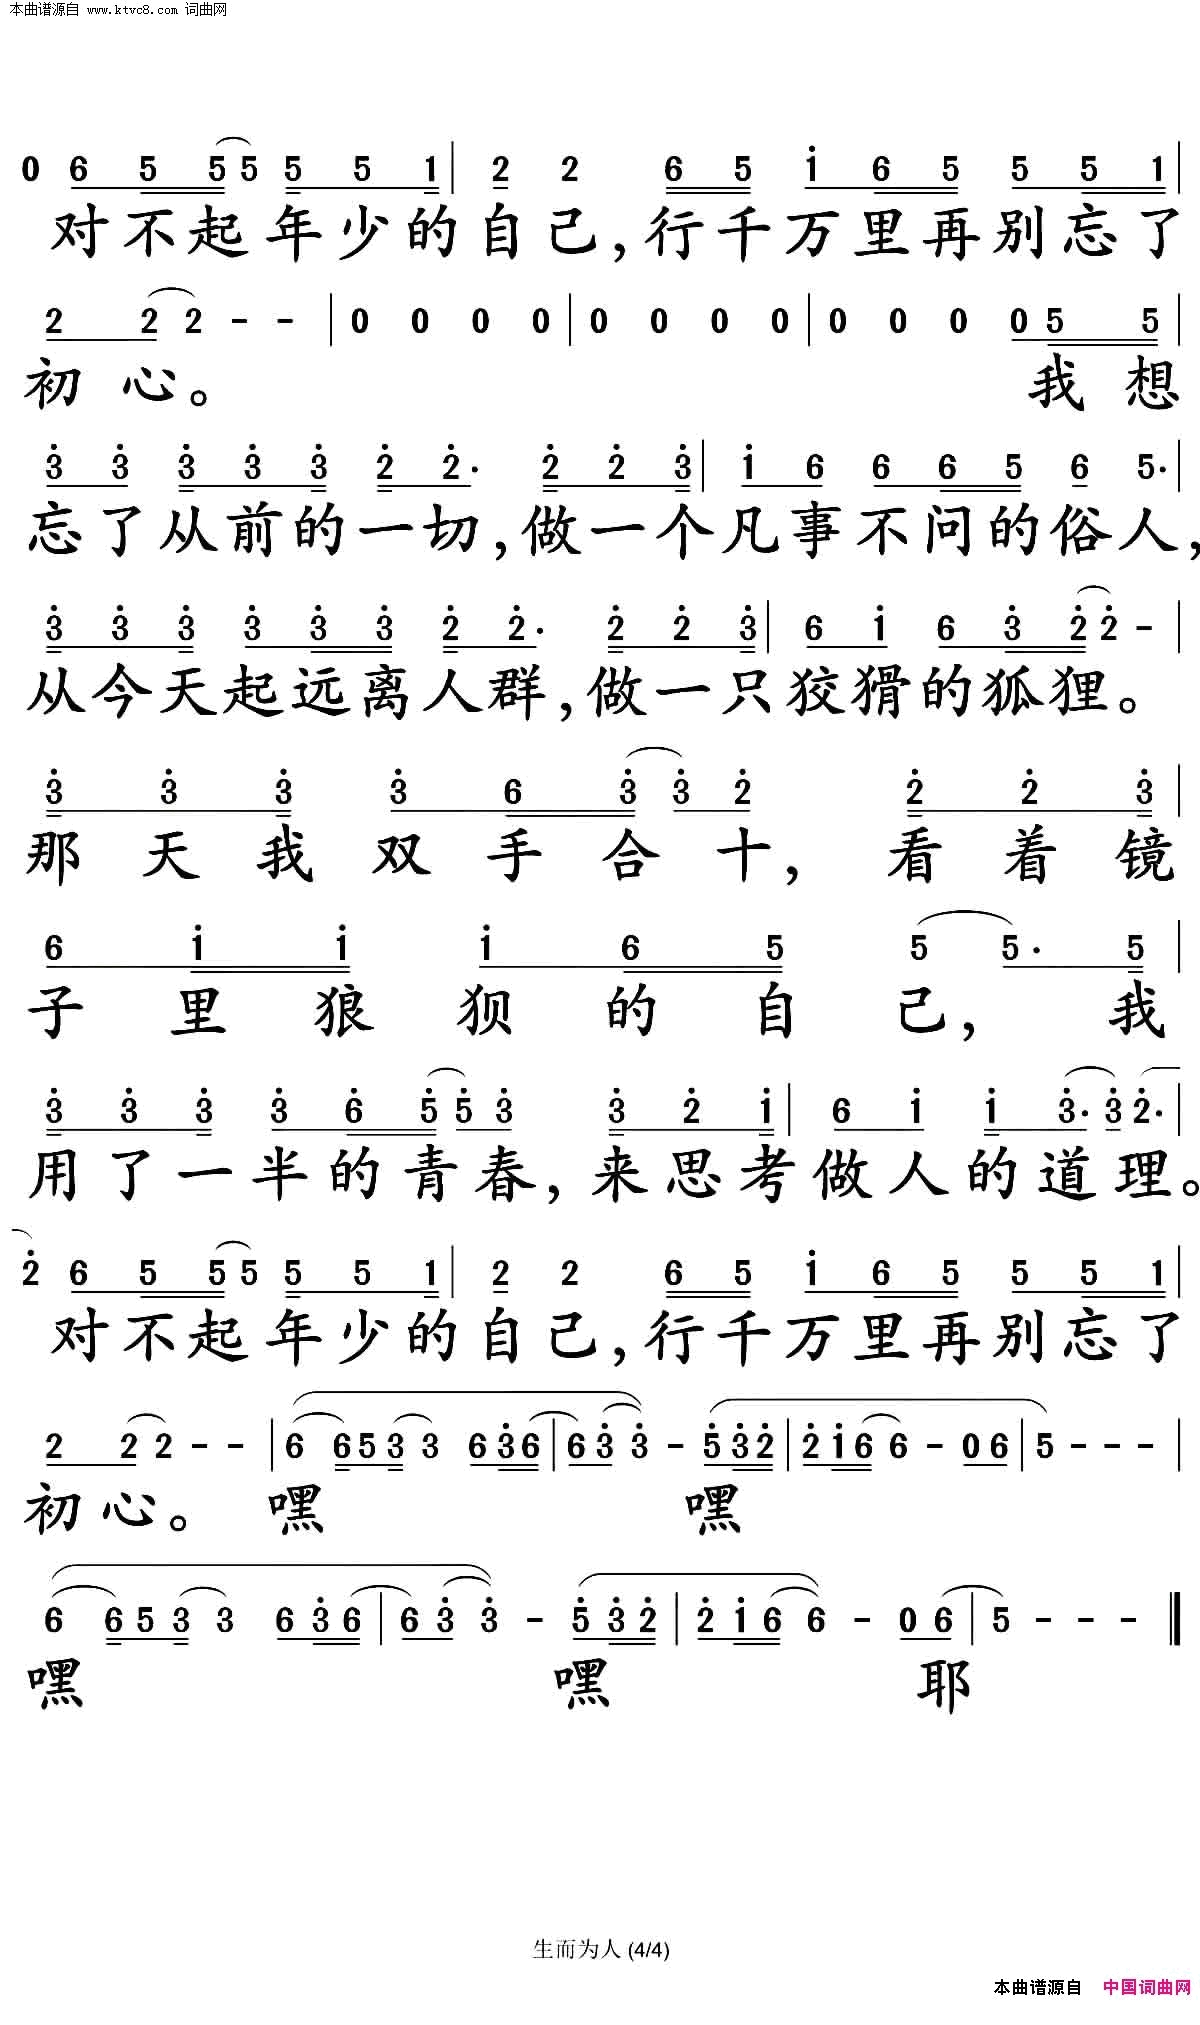 本曲谱源自 www.ktvc8.com 词曲网
0 6 5 5 5 5 5 1 | 2 2 6 5 1 6 5 5 5 1 |
对不起年少的自己，行千万里再别忘了
2 2 2 - - | 0 0 0 0 | 0 0 0 0 | 0 0 0 0 5 5 |
初心。 我想
3 3 3 3 3 2 2. 2 2 3 | 1 6 6 6 5 6 5.
忘了从前的一切，做一个凡事不问的俗人，
3 3 3 3 3 3 2 2. 2 2 3 | 6 1 6 3 2 2 - |
从今天起远离人群，做一只狡猾的狐狸。
3 3 3 3 6 3 3 2 2 2 3 |
那天我双手合十，看着镜
6 1 1 1 6 5 5 5. 5 |
子里狼狈的自己，我
3 3 3 3 6 5 5 3 3 2 1 | 6 1 1 3. 3 2. |
用了一半的青春，来思考做人的道理。
2 6 5 5 5 5 5 1 | 2 2 6 5 1 6 5 5 5 1 |
对不起年少的自己，行千万里再别忘了
2 2 2 - - | 6 6 5 3 3 6 3 6 | 6 3 3 - 5 3 2 | 2 1 6 6 - 0 6 | 5 - - - |
初心。嘿 嘿
6 6 5 3 3 6 3 6 | 6 3 3 - 5 3 2 | 2 1 6 6 - 0 6 | 5 - - - ‖
嘿 嘿 耶
生而为人 (4/4)
本曲谱源自 中国词曲网